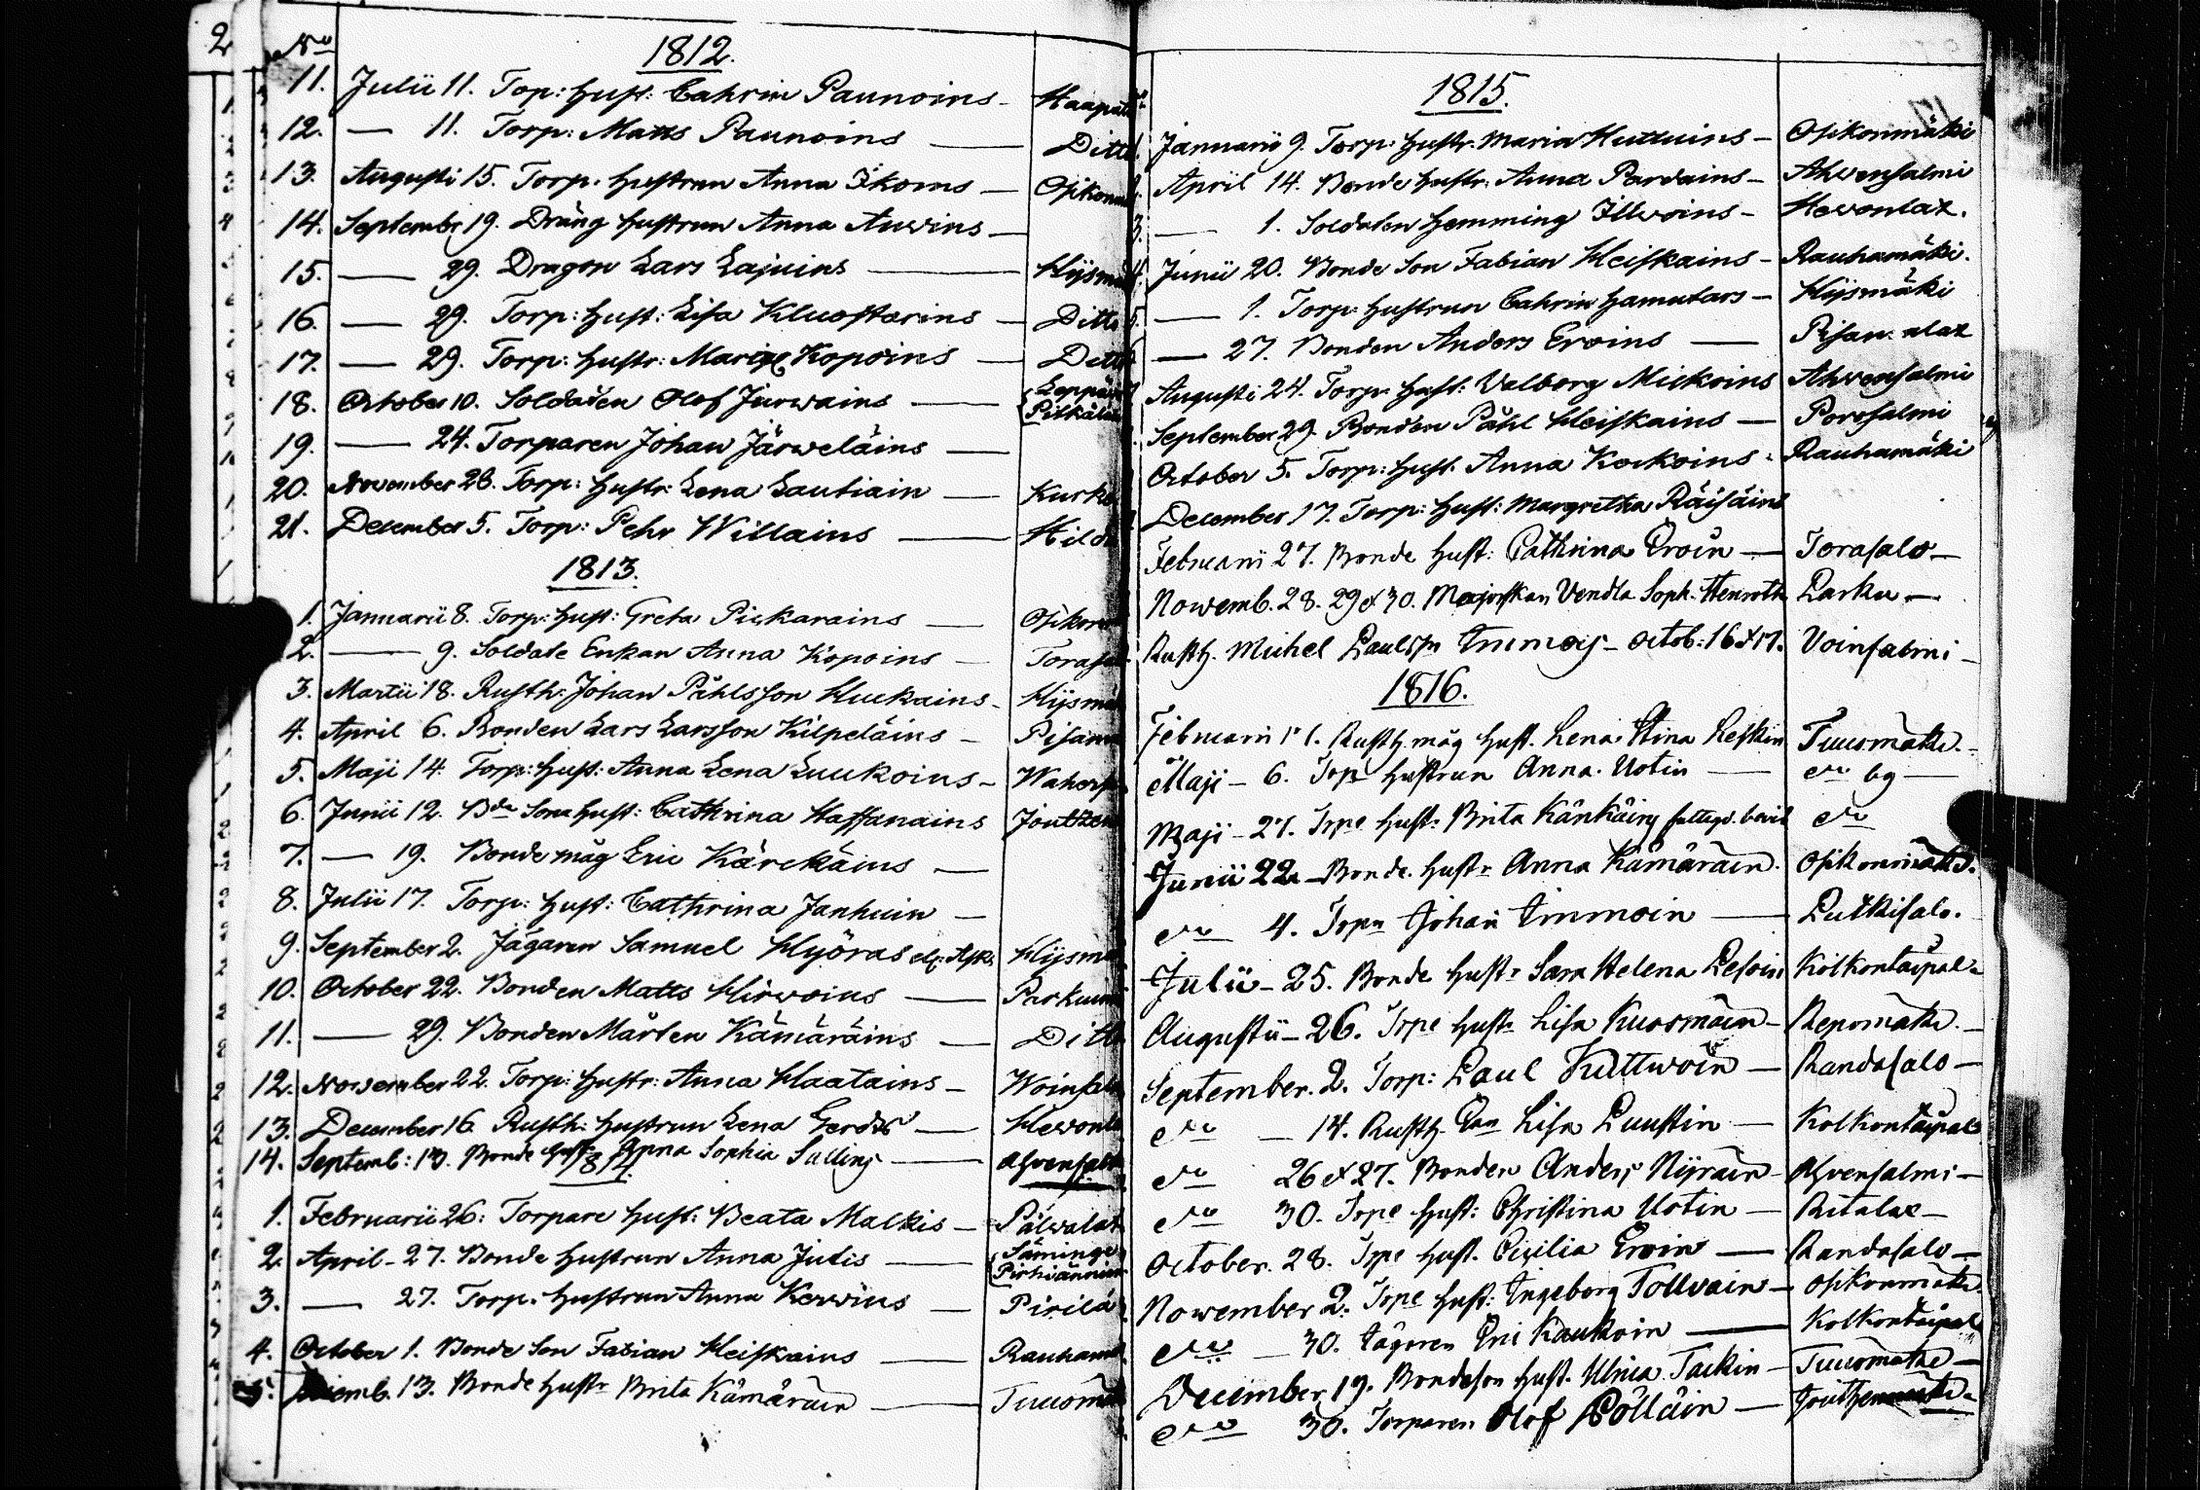 2
No
1812.
11. Julii 11. Torp: Hust: Cahrin Paunoins - Haapat
12. — 11. Torp: Matts Paunoins — Ditto
13. Augusti 15. Torp. Hustrun Anna Ikoins — Osikonm
14. Septembr 19. Dräng Hustrun Anna Auvins —
15. — 29. Dragon Lars Lajuins — Hijsmä
16. — 29. Torp: Hust: Lisa Kluostarins — Ditto
17. — 29. Torp: Hustr: Maria Kopoins — Ditto
18. October 10. Soldaten Olof Jurwains — Leppä
Pitkälax
19. — 24. Torparen Johan Järweläins —
20. November 28. Torp: Hustr: Lena Lautiain — Kurk
21. December 5. Torp: Pehr Willains — Hild
1813.
1. Januarii 8. Torp: Hust: Greta Pickarains — Osikon
2. — 9. Soldate Enkan Anna Kopoins — Toras
3. Martii 18. Rusth: Johan Påhlsson Huckains - Hijsmä
4. April 6. Bonden Lars Larsson Kilpeläins - Pisama
5. Maji 14. Torp: Hust: Anna Lena Luukoins - Wahers
6. Junii 12. Bde Sons Hust: Cathrina Hassanains Joutzen
7. — 19. Bonde måg Eric Kärckäins —
8. Julii 17. Torp: Hust: Cathrina Janhuin —
9. September 2. Jägaren Samuel Hyöras Hijsmä
10. October 22. Bonden Matts Hirwoins — Parkum
11. — 29. Bonden Mårten Kämäräins — Ditto
12. November 22. Torp: Hustr: Anna Haatains - Woinsal
13. December 16. Rusth: Hustrun Lena Gerdt — Hevonla
14. Septemb: 13. Bonde Hust Anna Sophia Sallinj — Ahvensalm
1814.
1. Februarii 26: Torpare Hust: Beata Malkis - Pälvalax
2. April - 27. Bonde Hustrun Anna Jutis — Säminge
Pirhiänniem
3. — 27. Torp. Hustrun Anna Kervins — Pirilä
4. October 1. Bonde Son Fabian Heiskains — Rauham
5. 13. Bonde Hustr Brita Kämäräin — Tuuom
1815.
1. Januarii 9. Torp: Hustr. Maria Huttuins - Osikonmäki
April 14. Bonde Hustr: Anna Pardains - Ahvensalmi
3. — 1. Soldaten Hemming Illvoins - Hevonlax.
4. Junii 20. Bonde Son Fabian Heiskains - Rauhamäki.
5. — 1. Torp: Hustrun Cahrin Hamutars - Hijsmäki
— 27. Bonden Anders Eroins — Pisam: alax
Augusti 24. Torp: Hust: Valborg Mickoins Ahvensalmi
September 29. Bonden Påhl Heiskains — Porosalmi
October 5. Torp: Hust. Anna Kockoins - Rauhamäki
December 17. Torp: Hust: Margretha Räisäins
Februarii 27. Bonde Hust: Cathrina Eroin — Torasalo —
Novemb. 28. 29 & 30. Majorskan Vendla Soph. Henroth Parku —
Rusth. Michel Paulsson Immoij - Octob: 16 & 17. Voinsalmi —
1816.
Februarii 11. Rusth. måg Hust. Lena Stina Leskin Tuuomäki. -
Maji - 6. Torp Hustrun Anna Uotin — do by —
Maji - 27. Torpe Hust: Brita Känkäinj do
Junii 22. - Bonde. Hustr Anna Kämäräin. Osikonmäki.
do 4. Torpn Johan Immoin — Putkisalo.
Julii - 25. Bonde Hustr Sara Helena Lesoin Kolkontaipal
Augustii - 26. Torpe Hustr Lisa Kuosmain - Repomäki. -
September. 2. Torp: Paul Kuttwoin — Randasalo —
do — 14. Rusth. Enn Lisa Puustin — Kolkontaipal
do 26 & 27. Bonden Anders Nijräin - Ahvensalmi —
do 30. Torpe Hust: Christina Uotin — Ritalax —
October. 28. Torpe Hust. Cicilia Eroin — Randasalo —
November 2. Torpe Hust: Ingeborg Tollvain — Osikonmäki
do — 30. Jägaren Eric Kaukoin — Kolkontaipal
December 19. Bondeson Hust. Ulrica Tackin - Tuuomäki —
do 30. Torparen Olof Pölläin — Joutzenmäki